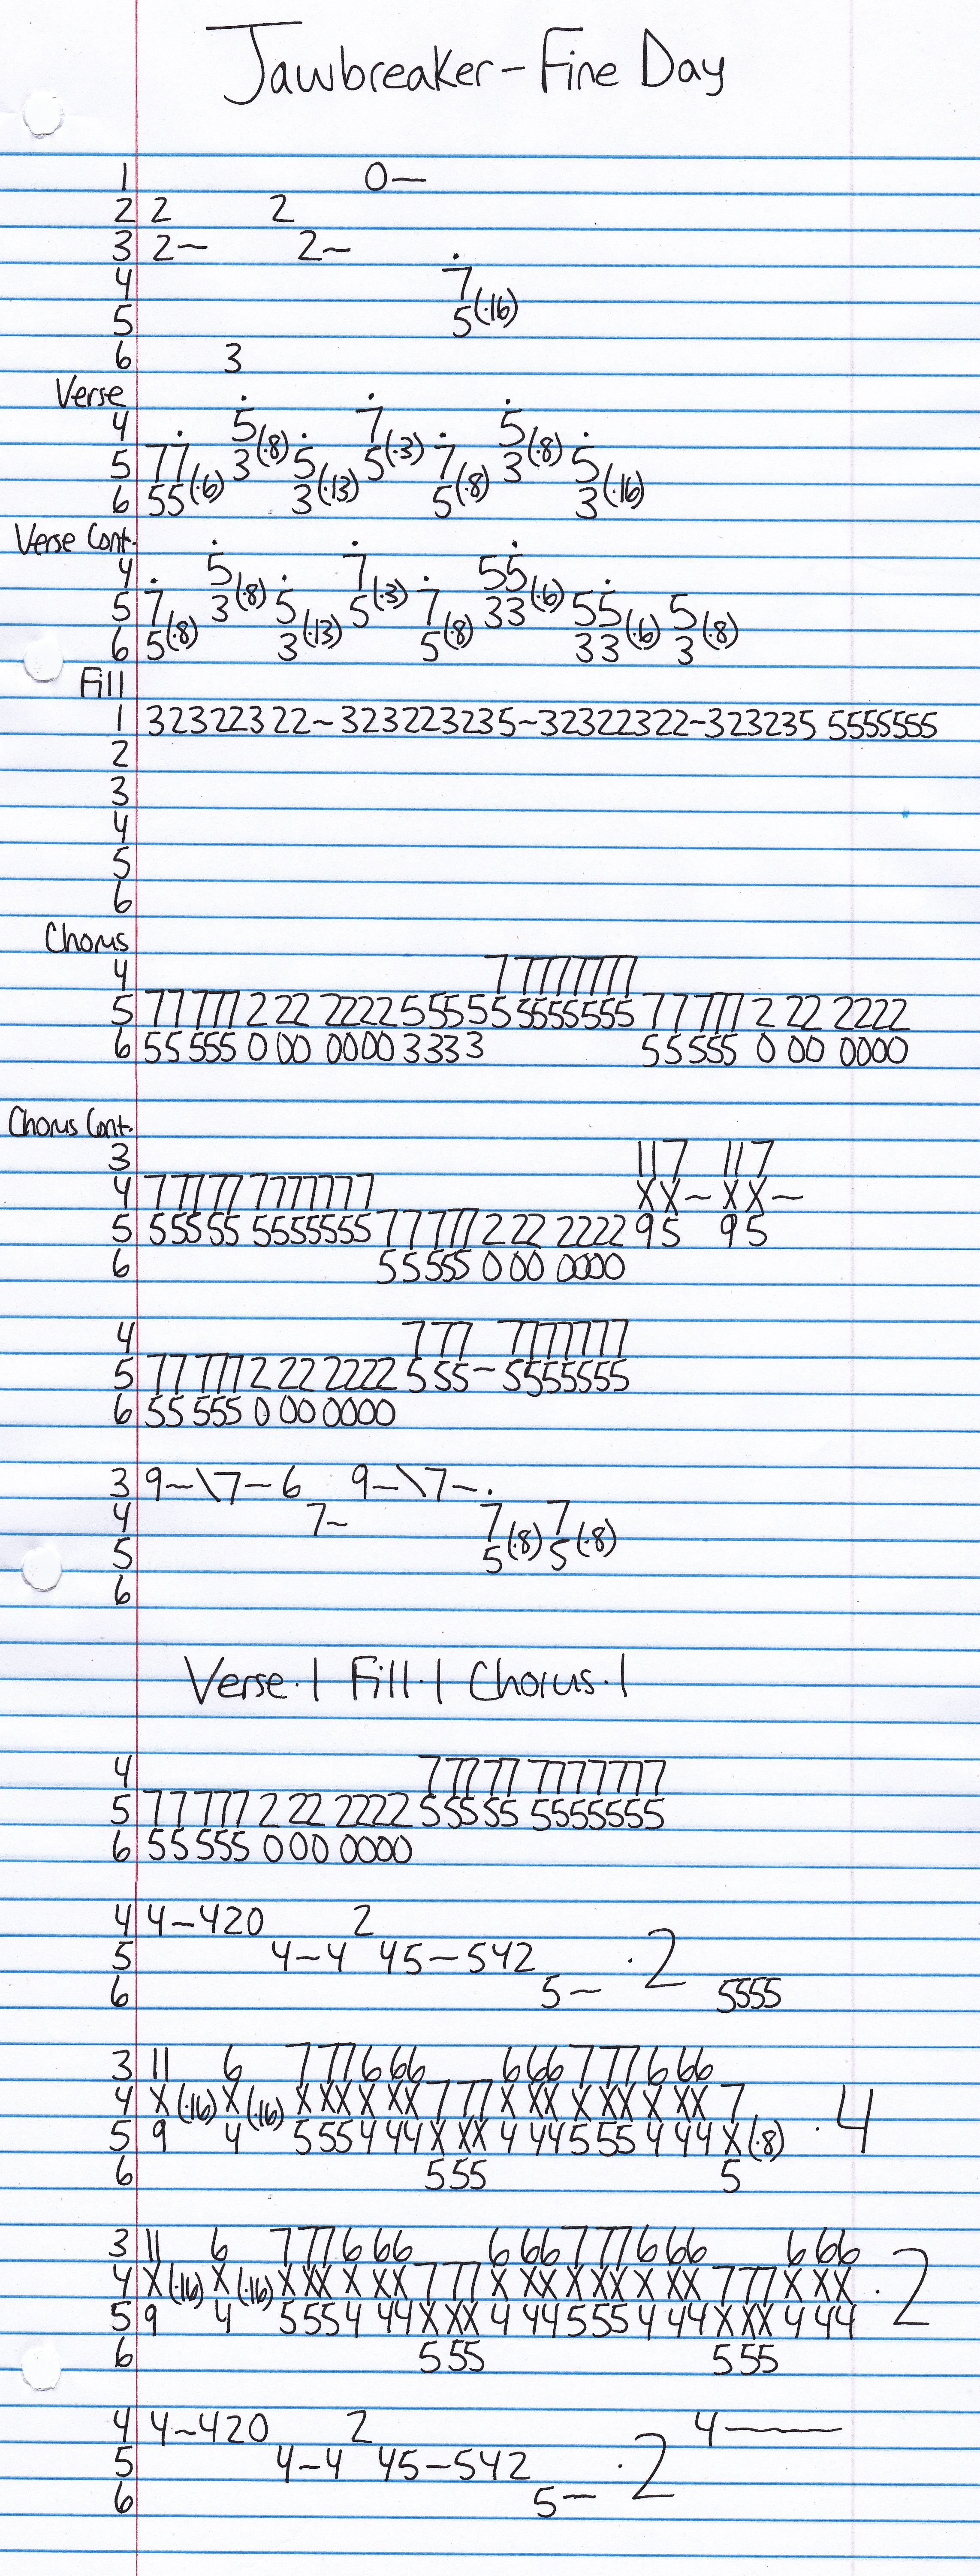 Jawbreaker - Fine Day
1 0~
2 2 2
3 2~ 2~
4 7
5 5(·16)
6 3
Verse
4 5 7 5
5 77 3(·8) 5 5(·3) 7 3(·8) 5
6 55(·6) 3(·13) 5(·8) 3(·16)
Verse Cont.
4 5 7 55
5 7 3(·8) 5 5(·3) 7 33(·6) 55 5
6 5(·8) 3(·13) 5(·8) 33(·6) 3(·8)
Fill
1 32322322~323223235~32322322~323235 5555555
2
3
4
5
6
Chorus
4 7 7777777
5 77 777 2 22 2222 5555 5 5555555 77 777 2 22 2222
6 55 555 0 00 0000 3333 55555 0 00 0000
Chorus Cont.
3 117 117
4 777 77 7777777 XX~XX~
5 555 55 5555555 77 777 2 22 2222 95 95
6 55 555 0 00 0000
4 7 77 7777777
5 77 777 2 22 2222 5 55~5555555
6 55 555 0 00 0000
3 9~\7~6 9~\7~·
4 7~ 7 7
5 5(·8) 5(·8)
6
Verse·1 Fill·1 Chorus·1
4 777 77 7777777
5 77 777 2 22 2222 555 55 5555555
6 55 555 0 00 0000
4 4~420 2
5 4~4 45~542 ·2
6 5~ 5555
3 11 6 777666 666777666
4 X(·16) X(·16) XXX X XX 777 X XX X XX X XX 7 ·4
5 9 4 555444 X XX 444555444 X(·8)
6 555 5
3 11 6 777666 666777666 666
4 X(·16) X(·16) X XX X XX 777 X XX X XX X XX 777 X XX ·2
5 9 4 555444 X XX 444555444 X XX 444
6 555 555
4 4~420 2 4~
5 4~4 45~542 ·2
6 5~